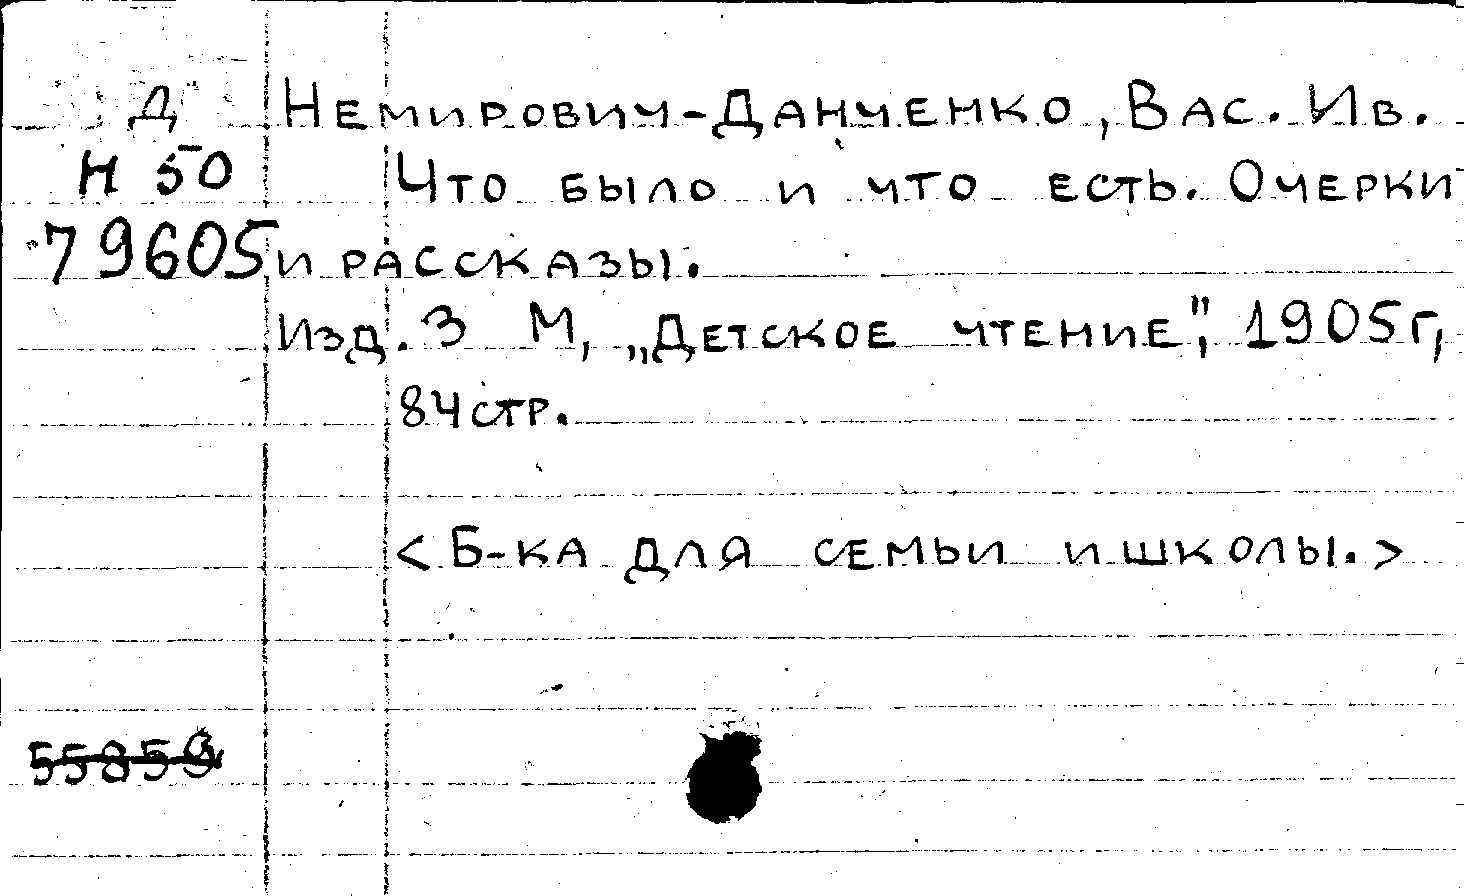 Д Немирович-Данченко, Вас. Ив.
Н 50 Что было и что есть. Очерки
79605 и рассказы.
Изд. 3 М, „Детское чтение", 1905г,
84 стр.
<Б-ка для семьи и школы.>
55859